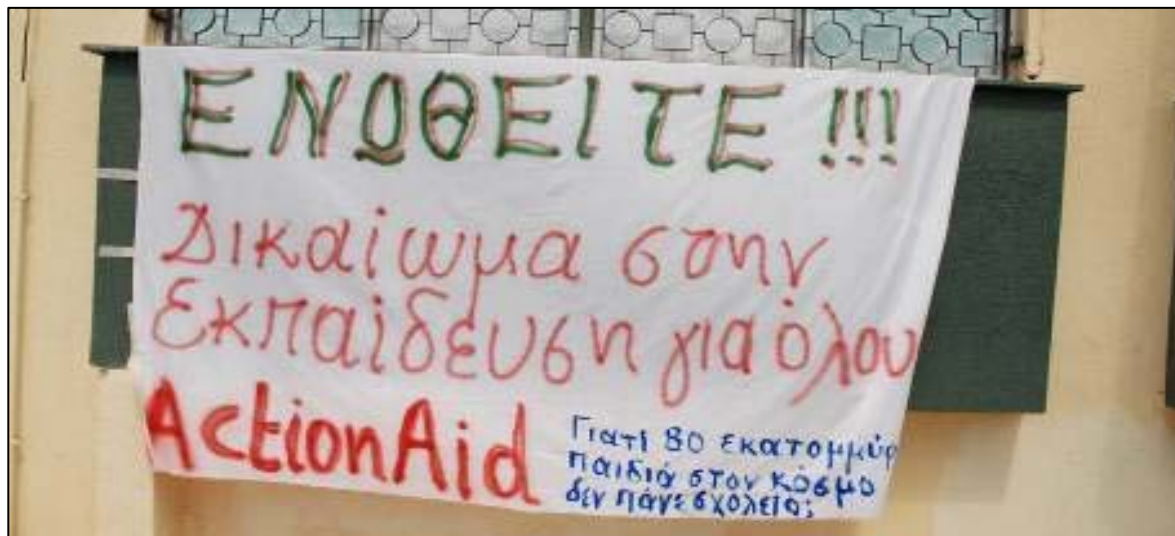 ΕΝΩΘΕΙΤΕ !!!
Δικαίωμα στην
εκπαίδευση για όλου
ActionAid
Γιατί 80 εκατομμύρ
παιδιά στον κόσμο
δεν πάνε σχολείο;